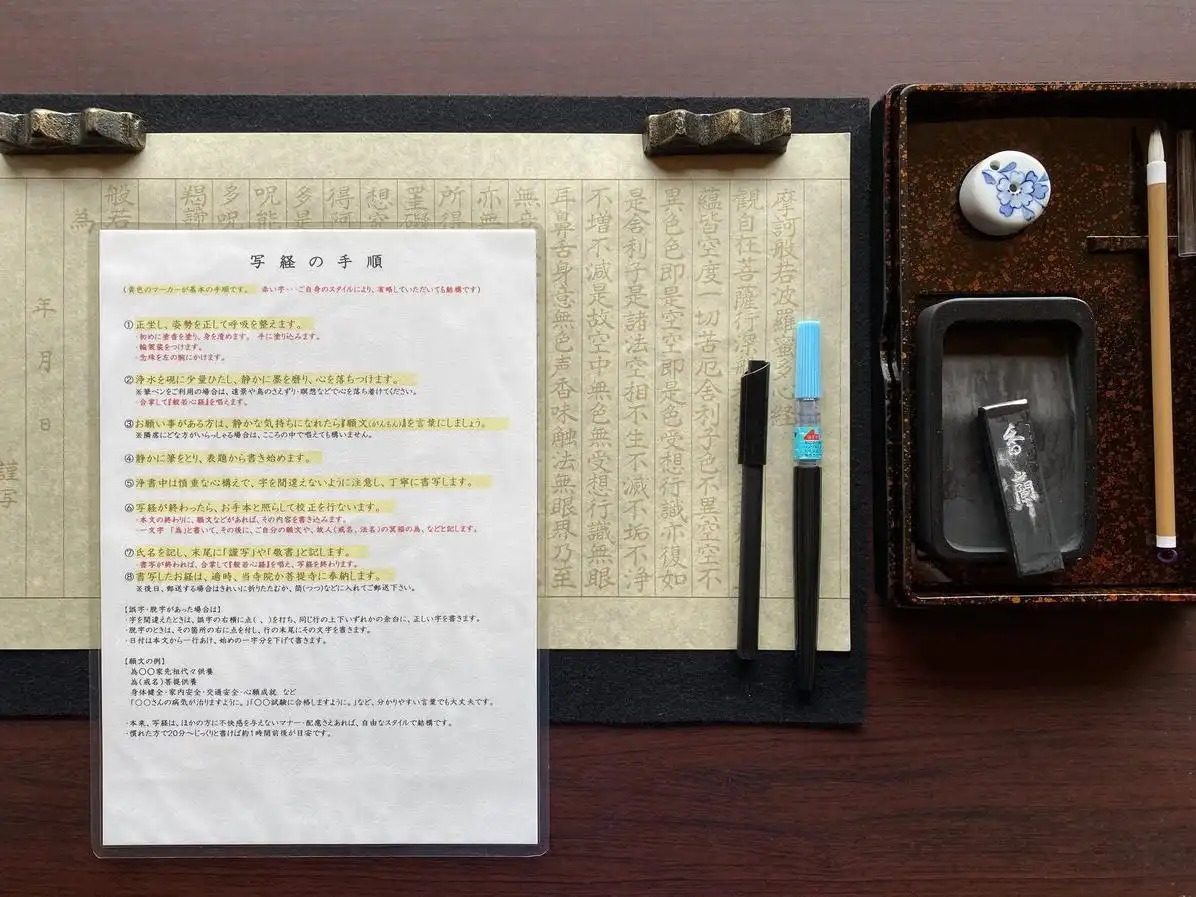 写経の手順
(黄色のマーカーが基本の手順です。 赤い字・・・ご自身のスタイルにより、省略していただいても結構です)
①正坐し、姿勢を正して呼吸を整えます。
・初めに塗香を塗り、身を清めます。 手に塗り込みます。
・輪袈裟をつけます。
・念珠を左の腕にかけます。
②浄水を硯に少量ひたし、静かに墨を磨り、心を落ちつけます。
※筆ペンをご利用の場合は、遠景や鳥のさえずり・瞑想などで心を落ち着けてください。
・合掌して『般若心経』を唱えます。
③お願い事がある方は、静かな気持ちになれたら『願文(がんもん)』を言葉にしましょう。
※隣席にどな方がいらっしゃる場合は、こころの中で唱えても構いません。
④静かに筆をとり、表題から書き始めます。
⑤浄書中は慎重な心構えで、字を間違えないように注意し、丁寧に書写します。
⑥写経が終わったら、お手本と照らして校正を行ないます。
・本文の終わりに、願文などがあれば、その内容を書き込みます。
・一文字 「為」と書いて、その後に、ご自分の願文や、故人(戒名、法名)の冥福の為、などと記します。
⑦氏名を記し、末尾に「謹写」や「敬書」と記します。
・書写が終われば、合掌して『般若心経』を唱え、写経を終わります。
⑧書写したお経は、適時、当寺院か菩提寺に奉納します。
※後日、郵送する場合はきれいに折りたたむか、筒(つつ)などに入れてご郵送下さい。
【誤字・脱字があった場合は】
・字を間違えたときは、誤字の右横に点( 、)を打ち、同じ行の上下いずれかの余白に、正しい字を書きます。
・脱字のときは、その箇所の右に点を付し、行の末尾にその文字を書きます。
・日付は本文から一行あけ、始めの一字分を下げて書きます。
【願文の例】
為〇〇家先祖代々供養
為(戒名)菩提供養
身体健全・家内安全・交通安全・心願成就 など
「〇〇さんの病気が治りますように。」「〇〇試験に合格しますように。」など、分かりやすい言葉でも大丈夫です。
・本来、写経は、ほかの方に不快感を与えないマナー・配慮さえあれば、自由なスタイルで結構です。
・慣れた方で20分〜じっくりと書けば約1時間前後が目安です。
摩訶般若波羅蜜多心経
観自在菩薩行深般
蘊皆空度一切苦厄舎利子色不異空空不
異色色即是空空即是色受想行識亦復如
是舎利子是諸法空相不生不滅不垢不浄
不増不減是故空中無色無受想行識無眼
耳鼻舌身意無色声香味触法無眼界乃至
亦無
所得
罣礙
想究
得阿
多是
呪能
多呪
羯諦
般若
為
年月日
謹写